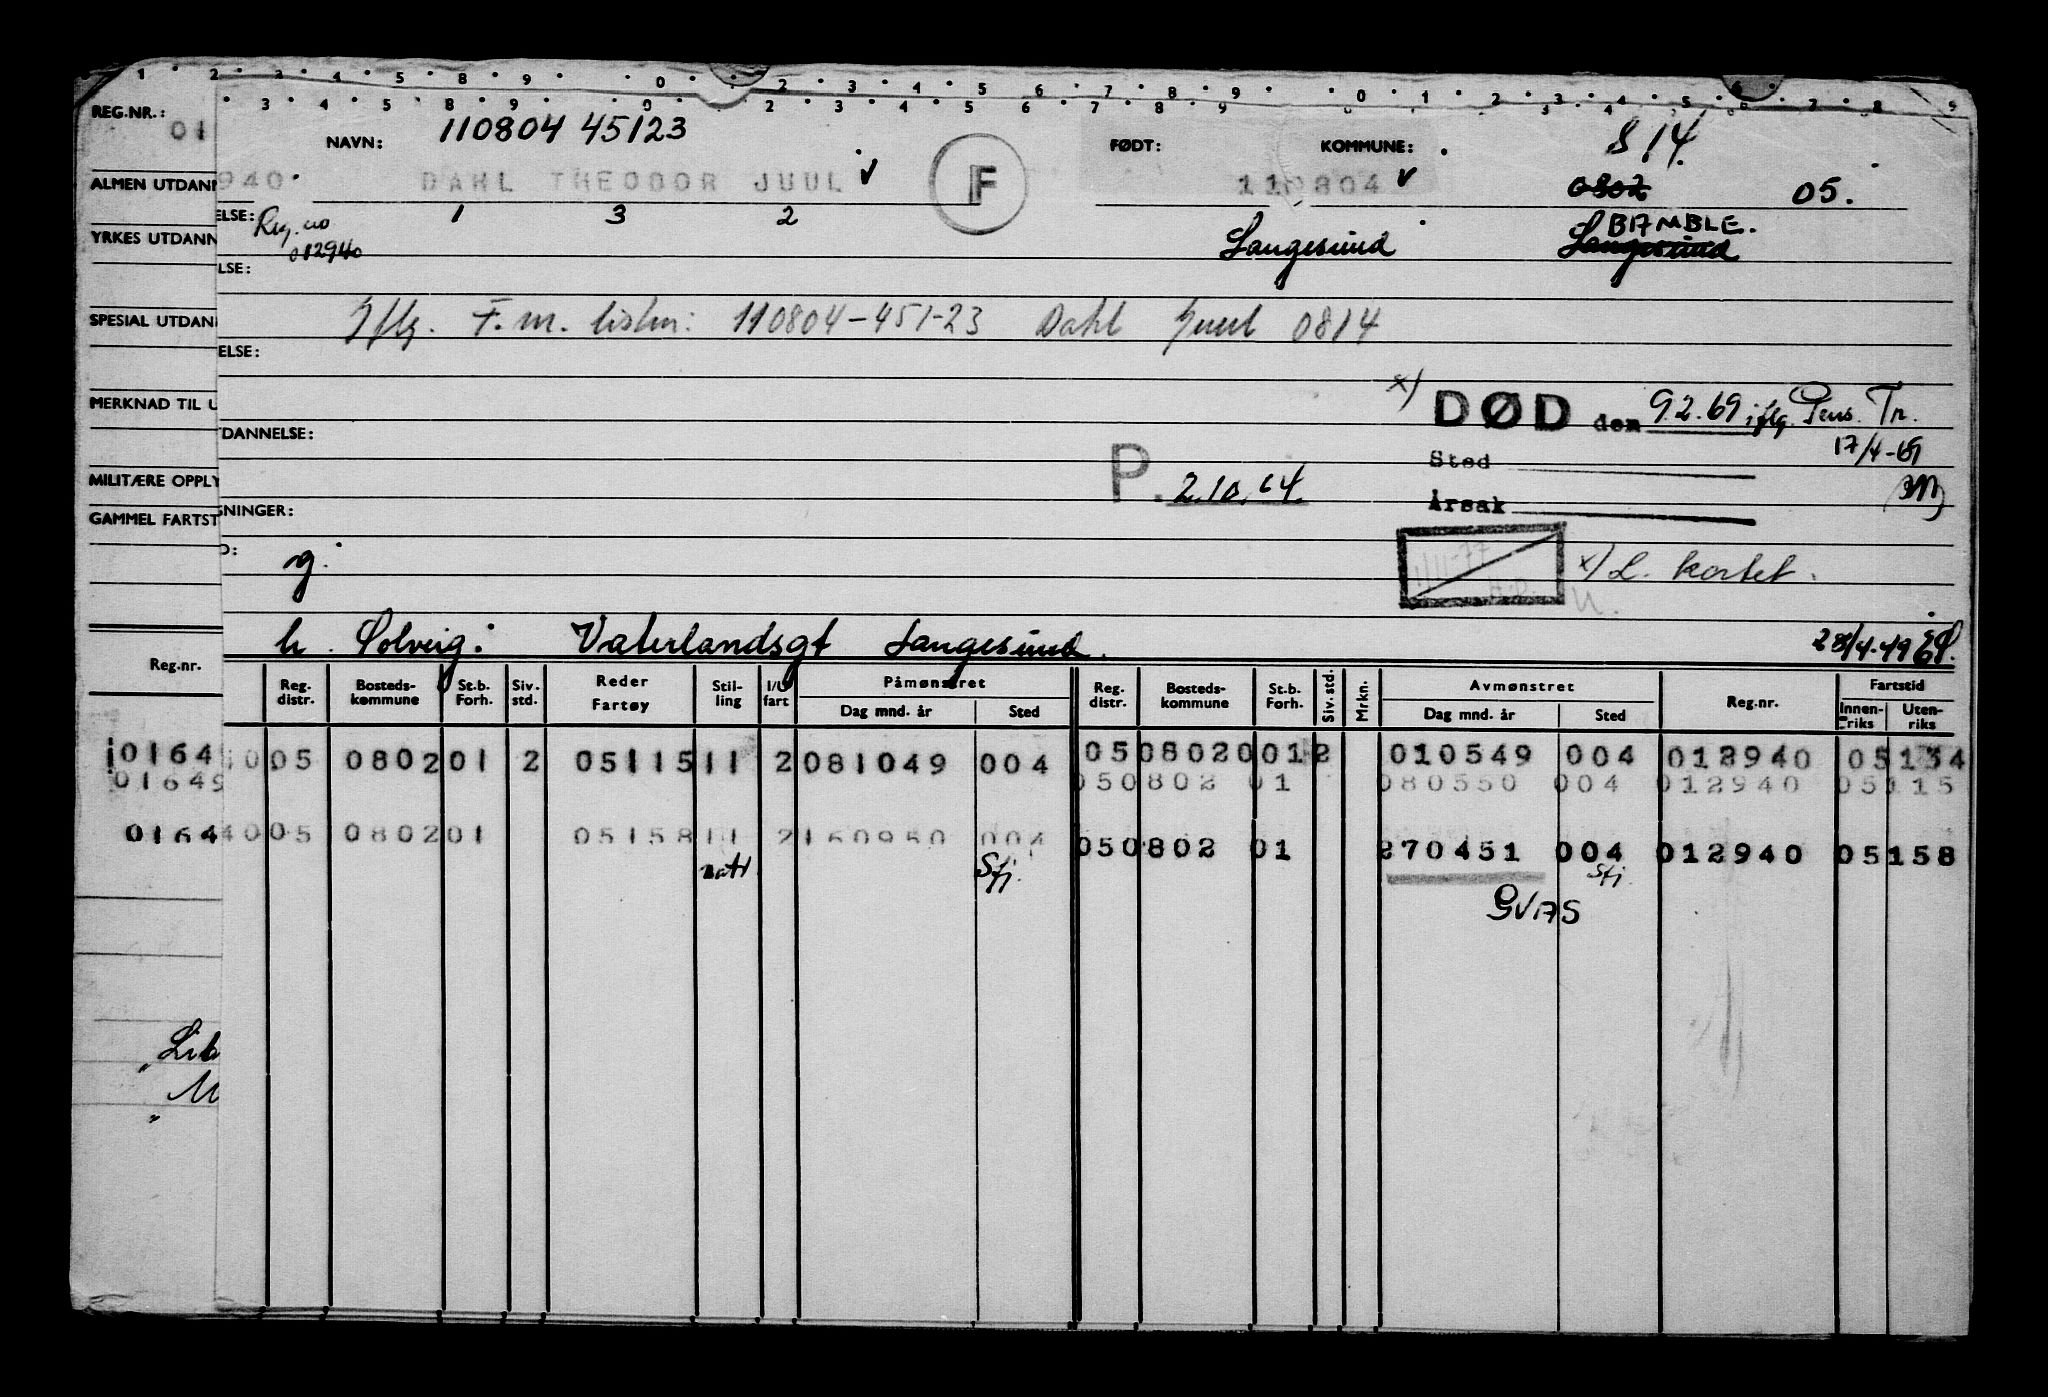 1 2 3 4 5 8 9 0 2 3 4 5 6 7 8 9 0 1 2 3 4 5 6 7 8 9
3 4 5 8 9 0 2 3 4 5 6 7 8 9
REG.NR.: 01 NAVN: 110804 45123 FØDT: KOMMUNE: 814
ALMEN UTDAN 940 DAHL THEODOR JUUL F 110804 0802 05.
ELSE: Reg. no 1 3 2 BAMBLE.
YRKES UTDANN 012940 Langesund Langesund
LSE:
SPESIAL UTDAN Iflg. F.m. listen: 110804-451-23 Dahl Juul 0814
ELSE:
MERKNAD TIL U x) DØD den 9.2.69 iflg. Pens. Tr.
DANNELSE: Sted 17/4-69
MILITÆRE OPPLY P. 2.10.64. Årsak
GAMMEL FARTST SNINGER:
D: g. 1/11-77 x) L. kortet.
h. Solveig: Vaterlandsgt Langesund. 28/4-49
Reg.nr. Reg. distr. Bosteds-kommune St.b. Forh. Siv. std. Reder Fartøy Stil-ling I/U fart Påmønstret Dag mnd. år Sted Reg. distr. Bosteds-kommune St.b. Forh. Siv. std. Mrkn. Avmønstret Dag mnd. år Sted Reg.nr. Fartstid Innen-riks Uten-riks
0164 05 0802 01 2 05115 11 2 081049 004 05 0802 0 01 2 010549 004 012940 05134
01649 050802 01 080550 004 012940 05115
0164 40 05 0802 01 05158 11 2 160950 004 050802 01 270451 004 012940 05158
matr. Stj. Stj.
GVAS
Lib
M